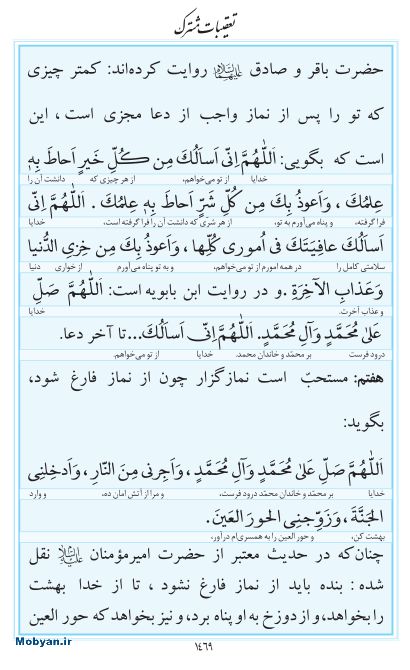 تعقیبات مشترک
حضرت باقر و صادق علیهما السلام روایت کرده‌اند: کمتر چیزی
که تو را پس از نماز واجب از دعا مجزی است ، این
است که بگویی: اَللّٰهُمَّ اِنّی اَسأَلُكَ مِن كُلِّ خَیرٍ اَحاطَ بِهٖ
خدایا از تو می‌خواهم، از هر چیزی که دانشت آن را
عِلمُكَ ، وَاَعوذُ بِكَ مِن كُلِّ شَرٍّ اَحاطَ بِهٖ عِلمُكَ . اَللّٰهُمَّ اِنّی
فرا گرفته، و پناه می‌آورم به تو، از هر شرّی که دانشت آن را فرا گرفته است، خدایا
اَسأَلُكَ عافِیَتَكَ فی اُموری كُلِّها ، وَاَعوذُ بِكَ مِن خِزیِ الدُّنیا
سلامتی کامل را در همه امورم از تو می‌خواهم، و به تو پناه می‌آورم از خواری دنیا
وَعَذابِ الآخِرَةِ .و در روایت ابن بابویه است: اَللّٰهُمَّ صَلِّ
و عذاب آخرت. خدایا
عَلیٰ مُحَمَّدٍ وَآلِ مُحَمَّدٍ. اَللّٰهُمَّ اِنّی اَسأَلُكَ...تا آخر دعا.
درود فرست بر محمّد و خاندان محمد. خدایا از تو می‌خواهم.
هفتم: مستحبّ است نمازگزار چون از نماز فارغ شود،
بگوید:
اَللّٰهُمَّ صَلِّ عَلیٰ مُحَمَّدٍ وَآلِ مُحَمَّدٍ ، وَاَجِرنی مِنَ النّارِ ، وَاَدخِلنِی
خدایا بر محمّد و خاندان محمّد درود فرست، و مرا از آتش امان ده، و وارد
الجَنَّةَ ، وَزَوِّجنِی الحورَ العینَ.
بهشت کن، و حور العین را به همسری‌ام درآور،
چنان‌که در حدیث معتبر از حضرت امیرمؤمنان علیه السلام نقل
شده : بنده باید از نماز فارغ نشود ، تا از خدا بهشت
را بخواهد، و از دوزخ به او پناه برد، و نیز بخواهد که حور العین
Mobyan.ir
۱۴۶۹